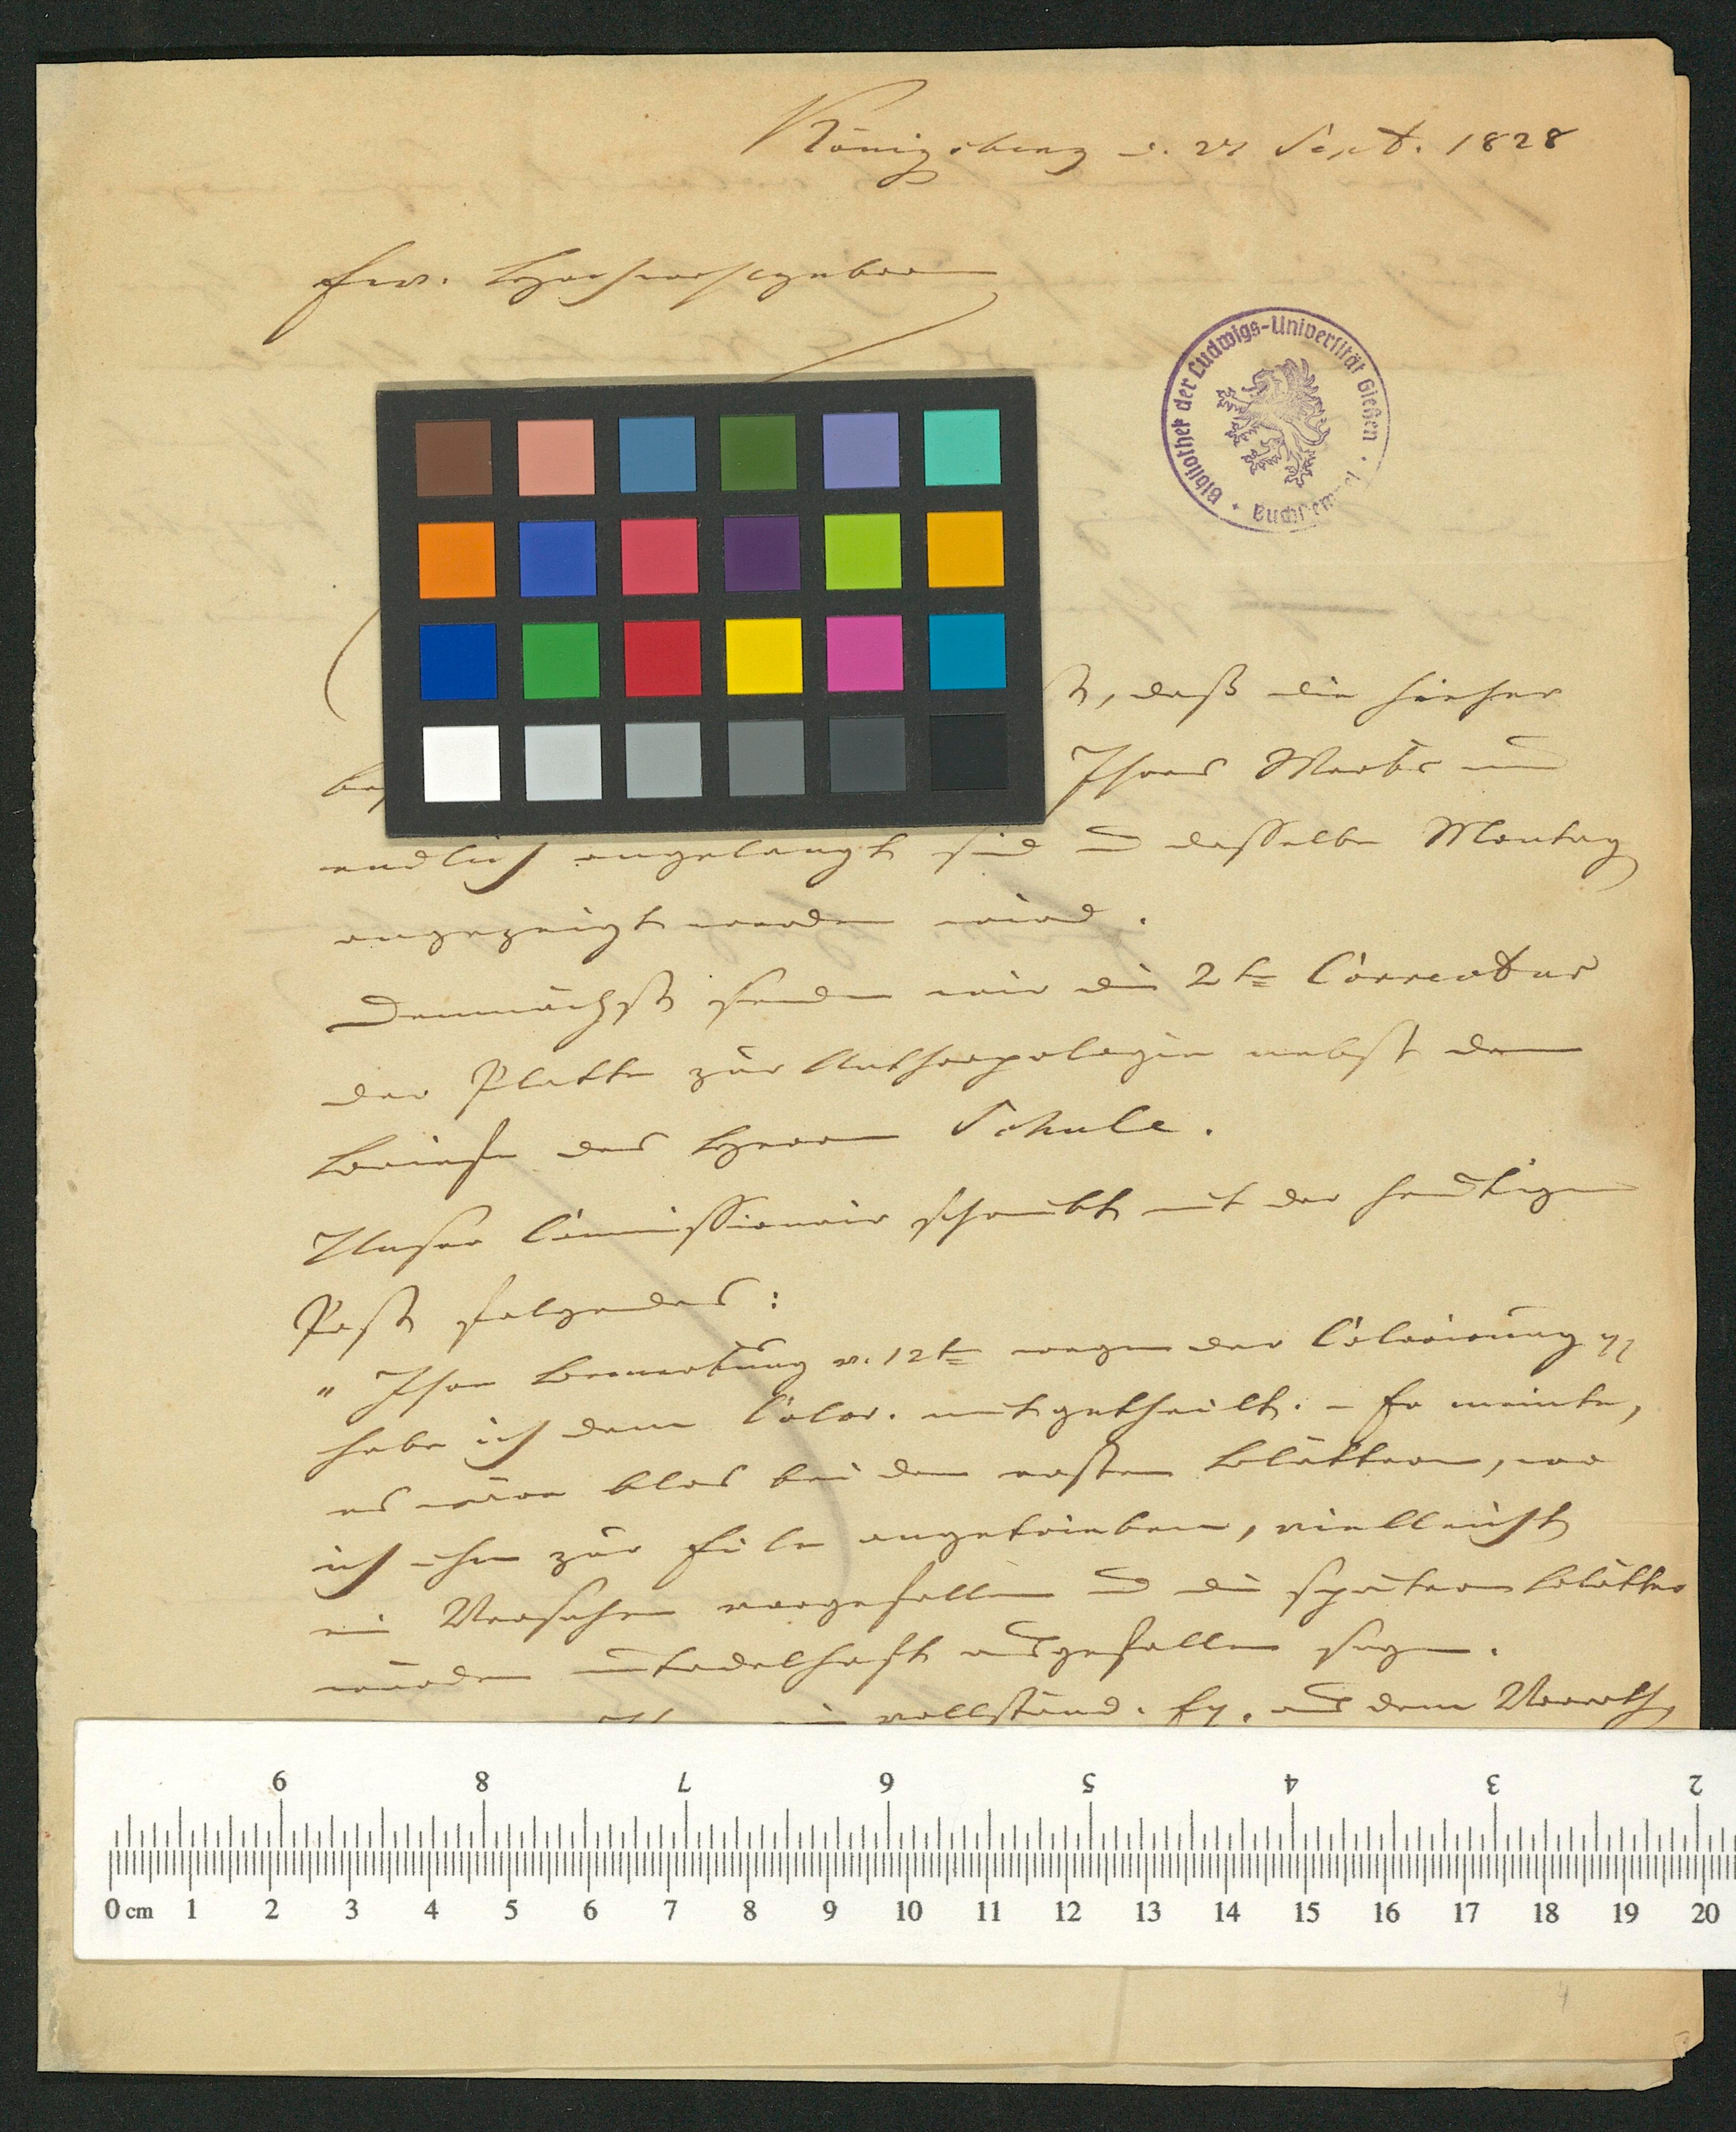 Königsberg d. 27 Sept. 1828
Ew. Hochwohlgeboren
Bibliothek der Ludwigs-Universität Gießen
daß die hieher
Ihres Werks und
endlich angelangt sind u dasselbe Montag
angezeigt werden wird.
Demnächst senden wir die 2te Correctur
der Platte zur Anthropologie nebst dem
Briefe des Herrn Schule.
Unser Commissionair schreibt mit der heutigen
Post folgendes:
"Ihre Bemerkung v. 12ten wegen der Colorirung
habe ich dem Color. mitgetheilt. - Er meinte,
es wäre blos bei den ersten Blättern, wo
ich ihn zur Eile angetrieben, vielleicht
ein Versehen vorgefallen u die spätern Blätter
würden untadelhaft ausgefallen seyn.
ein vollständ. Ex. aus dem Vorrath
9 8 7 6 5 4 3 2
0 cm 1 2 3 4 5 6 7 8 9 10 11 12 13 14 15 16 17 18 19 20